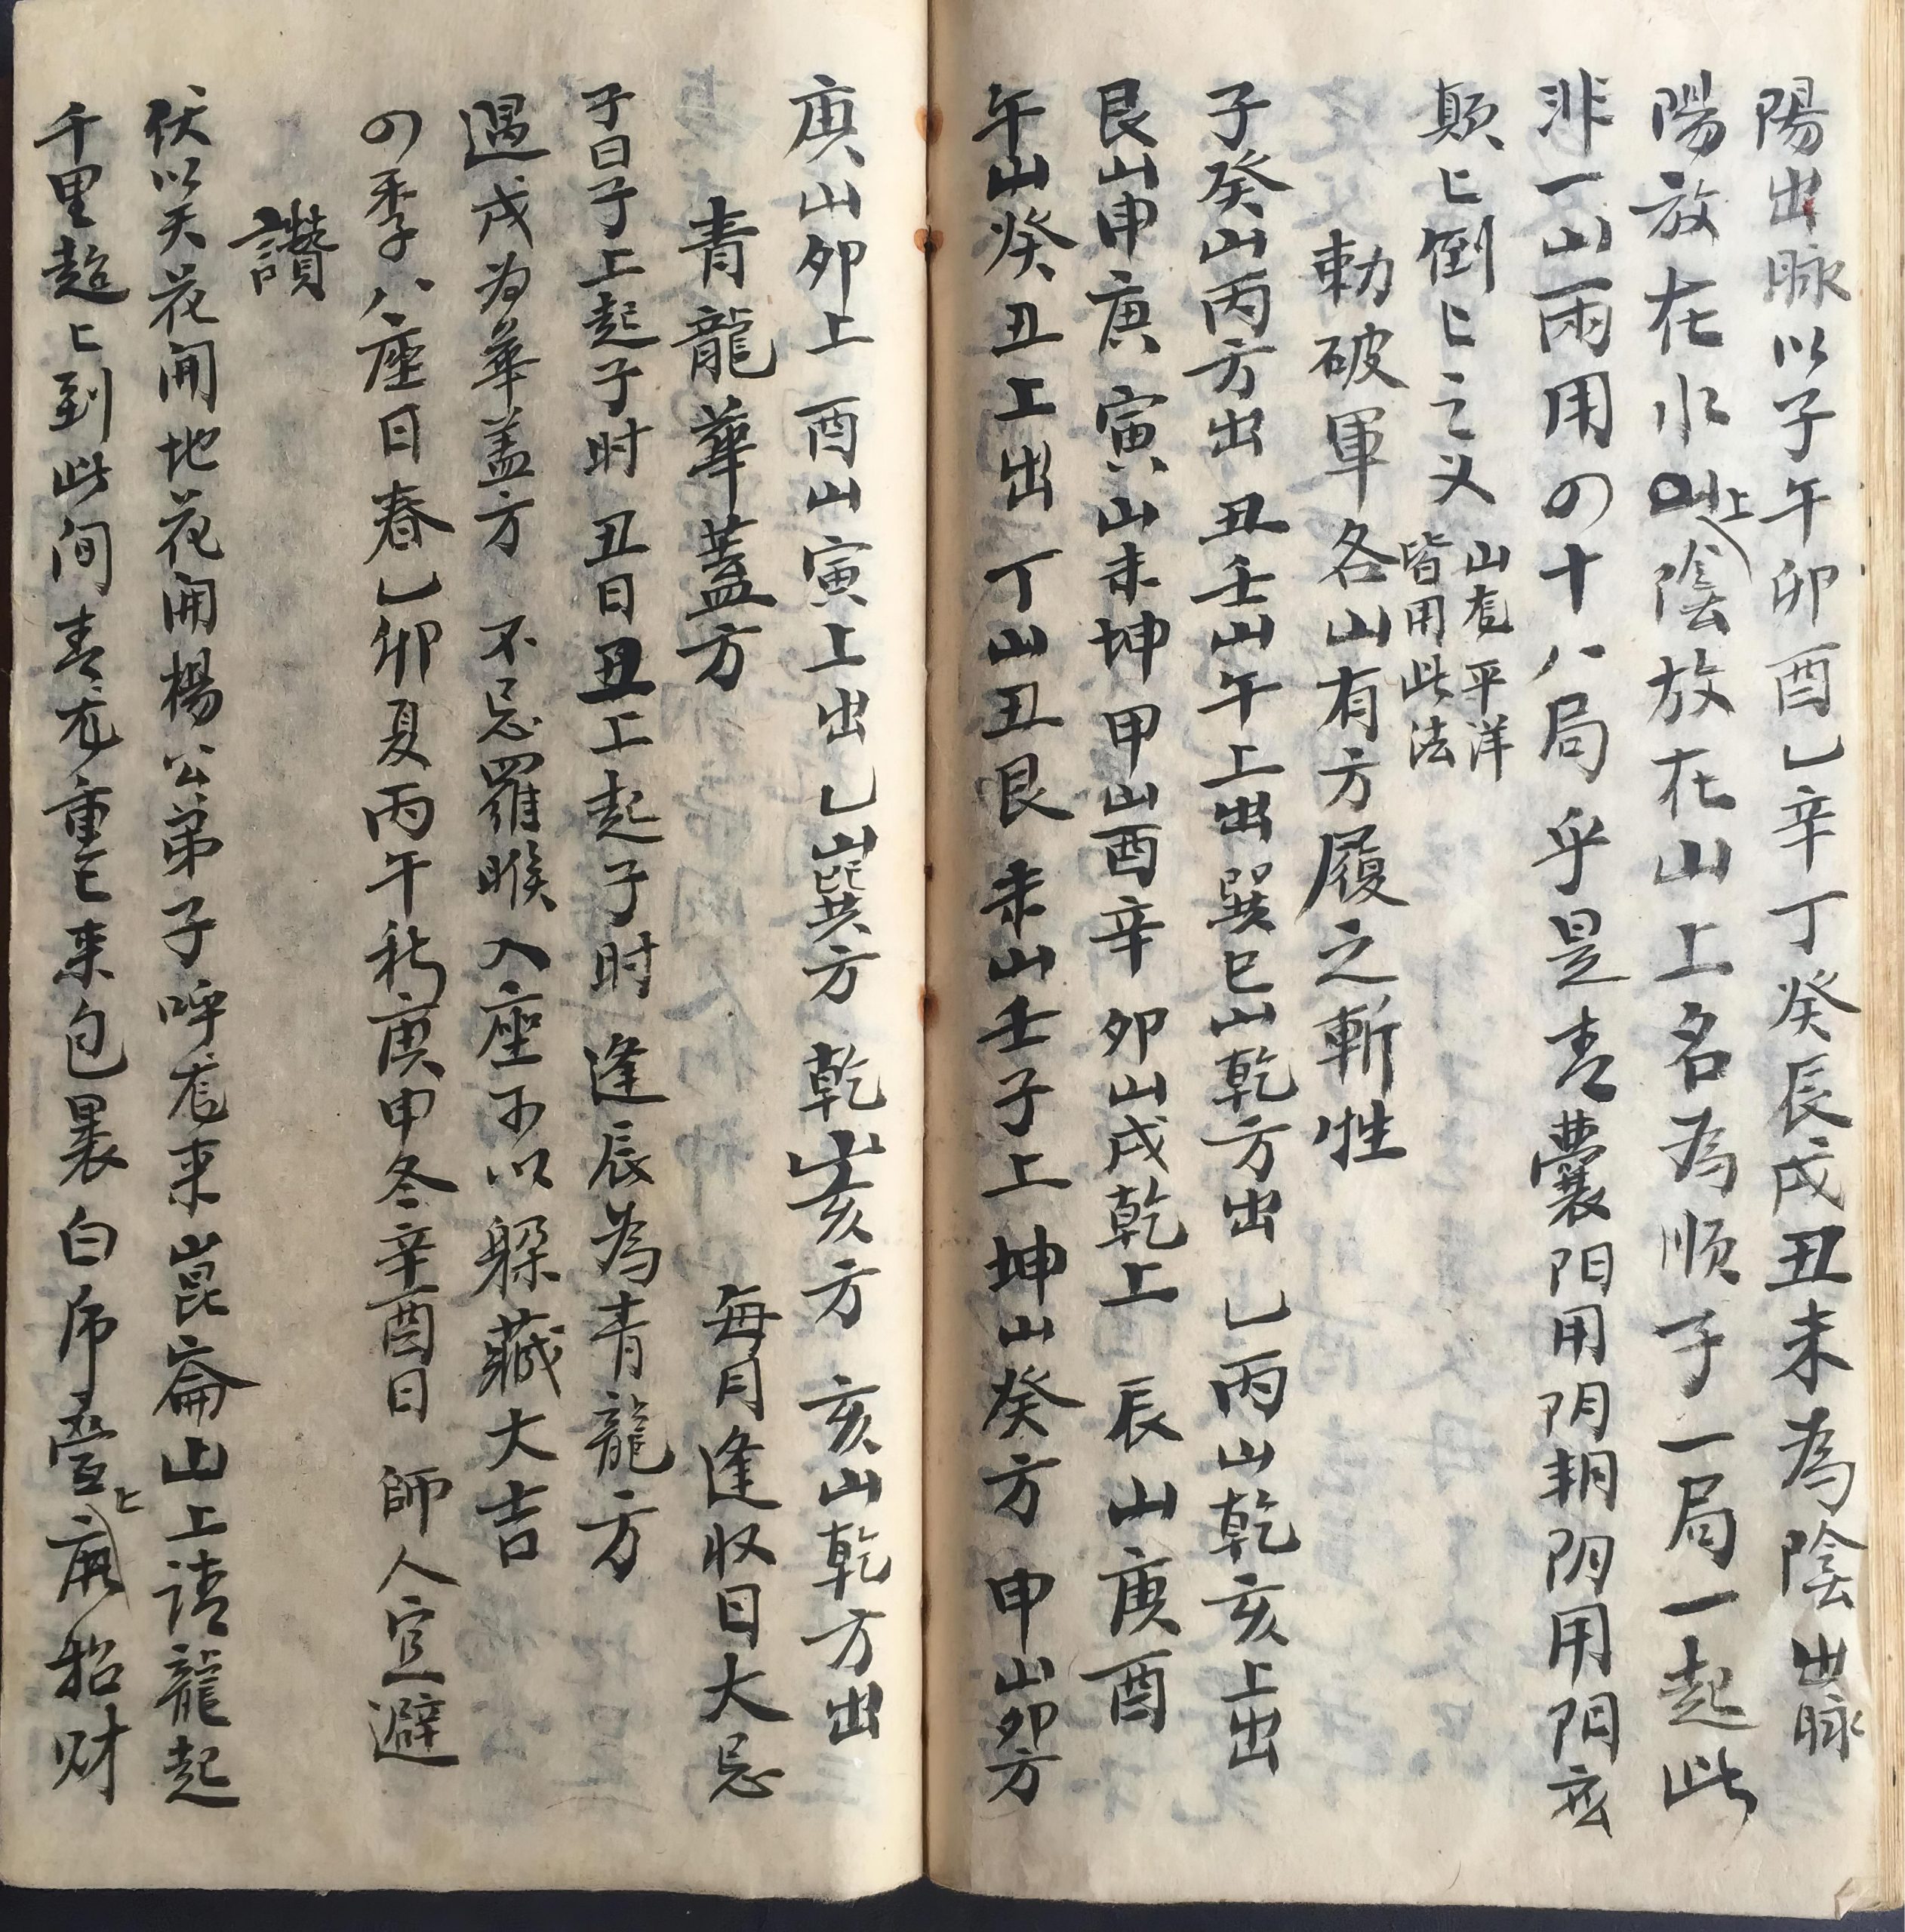 陽出脉以子午卯酉乚辛丁癸辰戌丑未為陰出脉
陽放在水上陰放在山上名為順子一局一起此
非一山兩用の十八局乎是青囊阳用阴朝阴用阳玄
顛〻倒〻之义
山龙平洋
皆用此法
勅破軍各山有方履之斬牲
子癸山丙方出 丑壬山午上出巽巳山乾方出 乚丙山乾亥上出
艮山申庚寅山未坤 甲山酉辛 卯山戌乾上 辰山庚酉
午山癸丑上出 丁山丑艮 未山壬子上坤山癸方 申山卯方
庚山卯上 酉山寅上出乚山巽方 乾山亥方 亥山乾方出
青龍華蓋方 每月逢收日大忌
子日子上起子时 丑日丑上起子时 逢辰為青龍方
遇戌为華盖方 不忌羅睺入座可以躲藏大吉
の季八座日春乚卯夏丙午秋庚申冬辛酉日 師人宜避
讚
伏以天花闹地花闹楊公弟子呼龙来崑崙山上请龍起
千里超〻到此间青龙重〻来包裹白虎叠〻招财